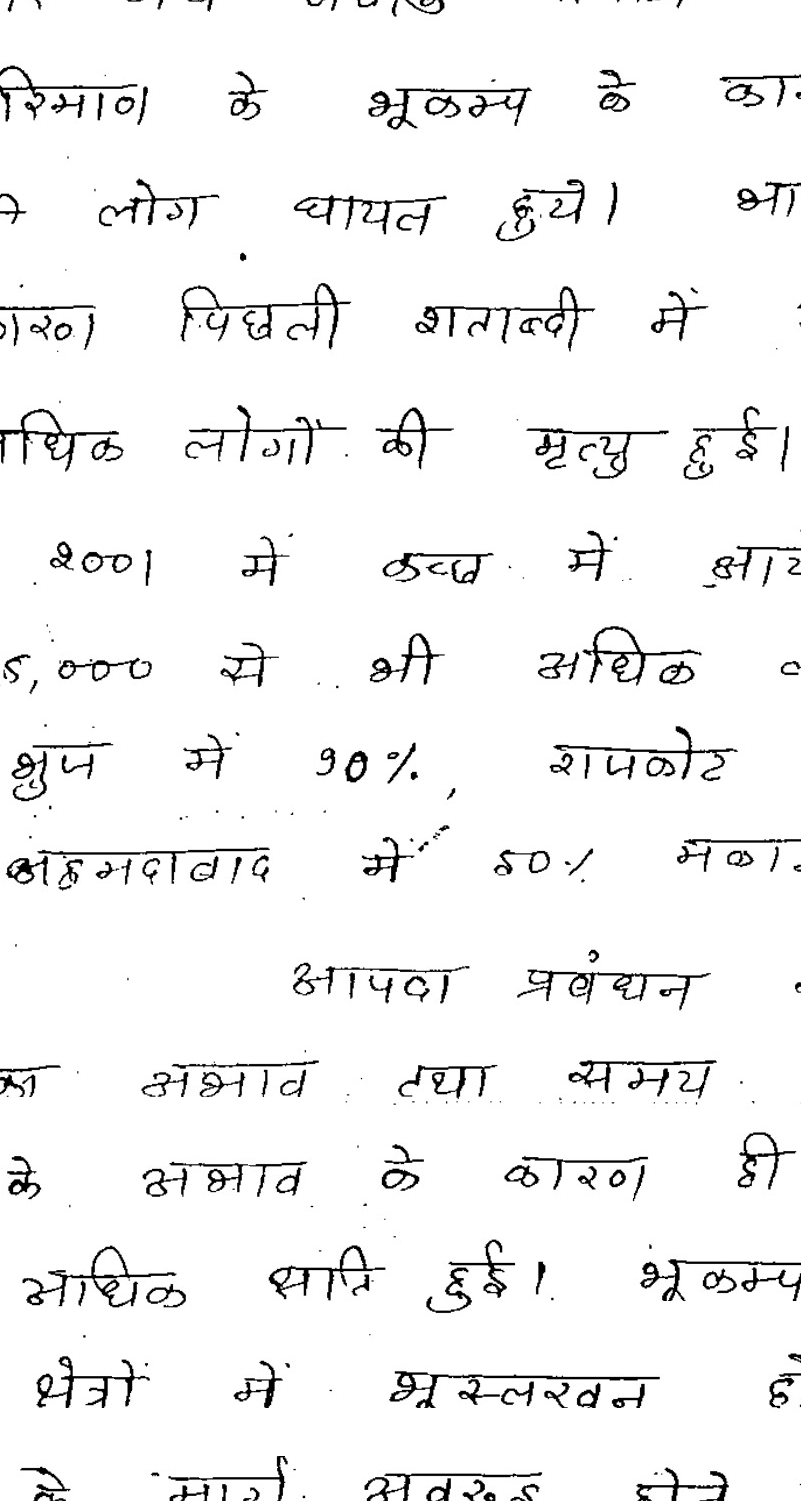 रिमाण के भूकम्प के का
लोग घायल हुये। भा
ारण पिछली शताब्दी में
धिक लोगों की मृत्यु हुई।
2001 में कच्छ में आय
5,000 से भी अधिक
भुज में 90%, राजकोट
अहमदाबाद में 50% मका
आपदा प्रबंधन
का अभाव तथा समय
के अभाव के कारण ही
अधिक क्षति हुई। भूकम्प
क्षेत्रों में भूस्लखन हो
के मार्ग अवरूद्ध होने